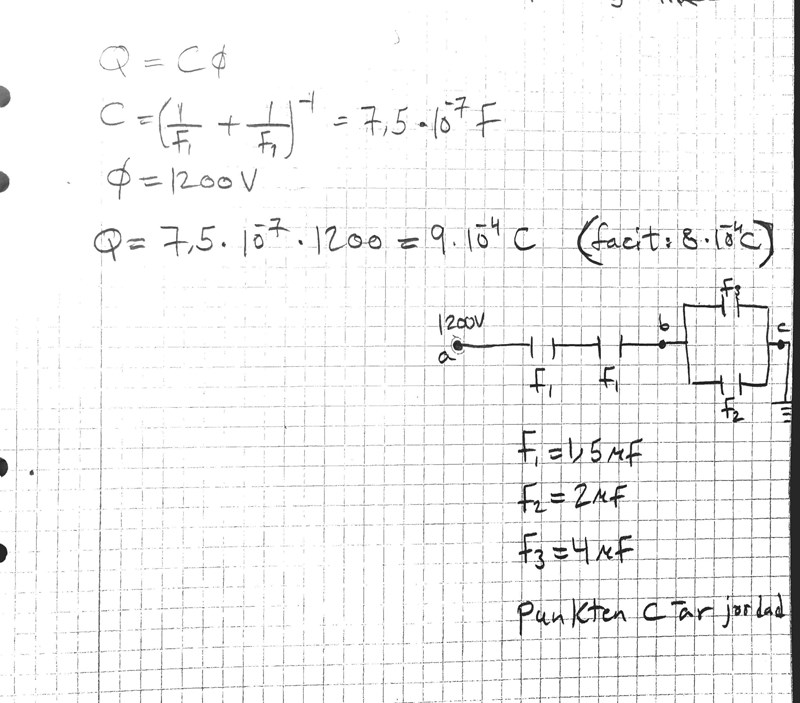 Q = Cϕ
C = (1/F₁ + 1/F₁)⁻¹ = 7,5·10⁻⁷ F
ϕ = 1200V
Q = 7,5·10⁻⁷·1200 = 9·10⁻⁴ C (facit: 8·10⁻⁴C)
F₃
1200V
b
c
a
F₁ F₁
F₂
F₁ = 1,5 μF
F₂ = 2 μF
F₃ = 4 μF
Punkten C är jordad